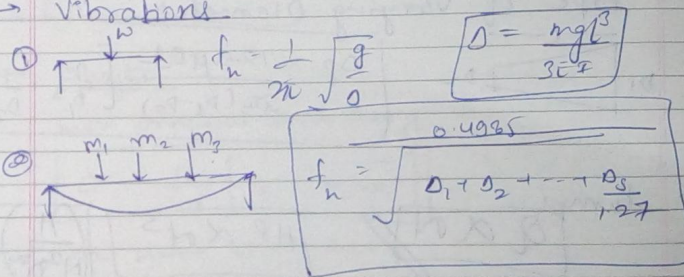 → Vibrations
① W f_n = 1/2π √(g/Δ) Δ = mgl³/3EI
② m₁ m₂ m₃ f_n = 0.4985/√(Δ₁ + Δ₂ + --- + Δs/1.27)